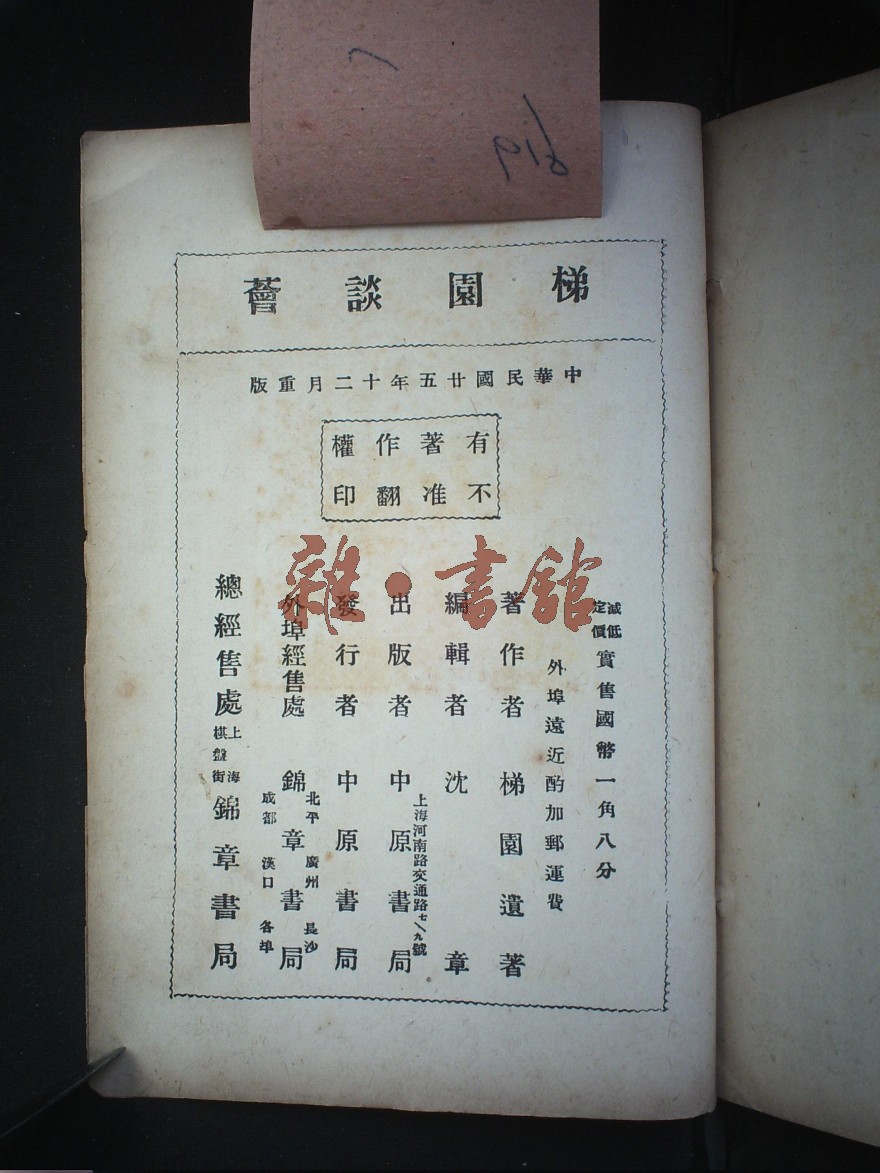 梯園談薈
中華民國廿五年十二月重版
有著作權
不准翻印
減低定價實售國幣一角八分
外埠遠近酌加郵運費
著作者 梯園遺著
編輯者 沈章
上海河南路交通路七/九號
出版者 中原書局
發行者 中原書局
外埠經售處 錦章書局
北平 廣州 長沙
成都 漢口 各埠
總經售處 上海棋盤街 錦章書局
雜·書館